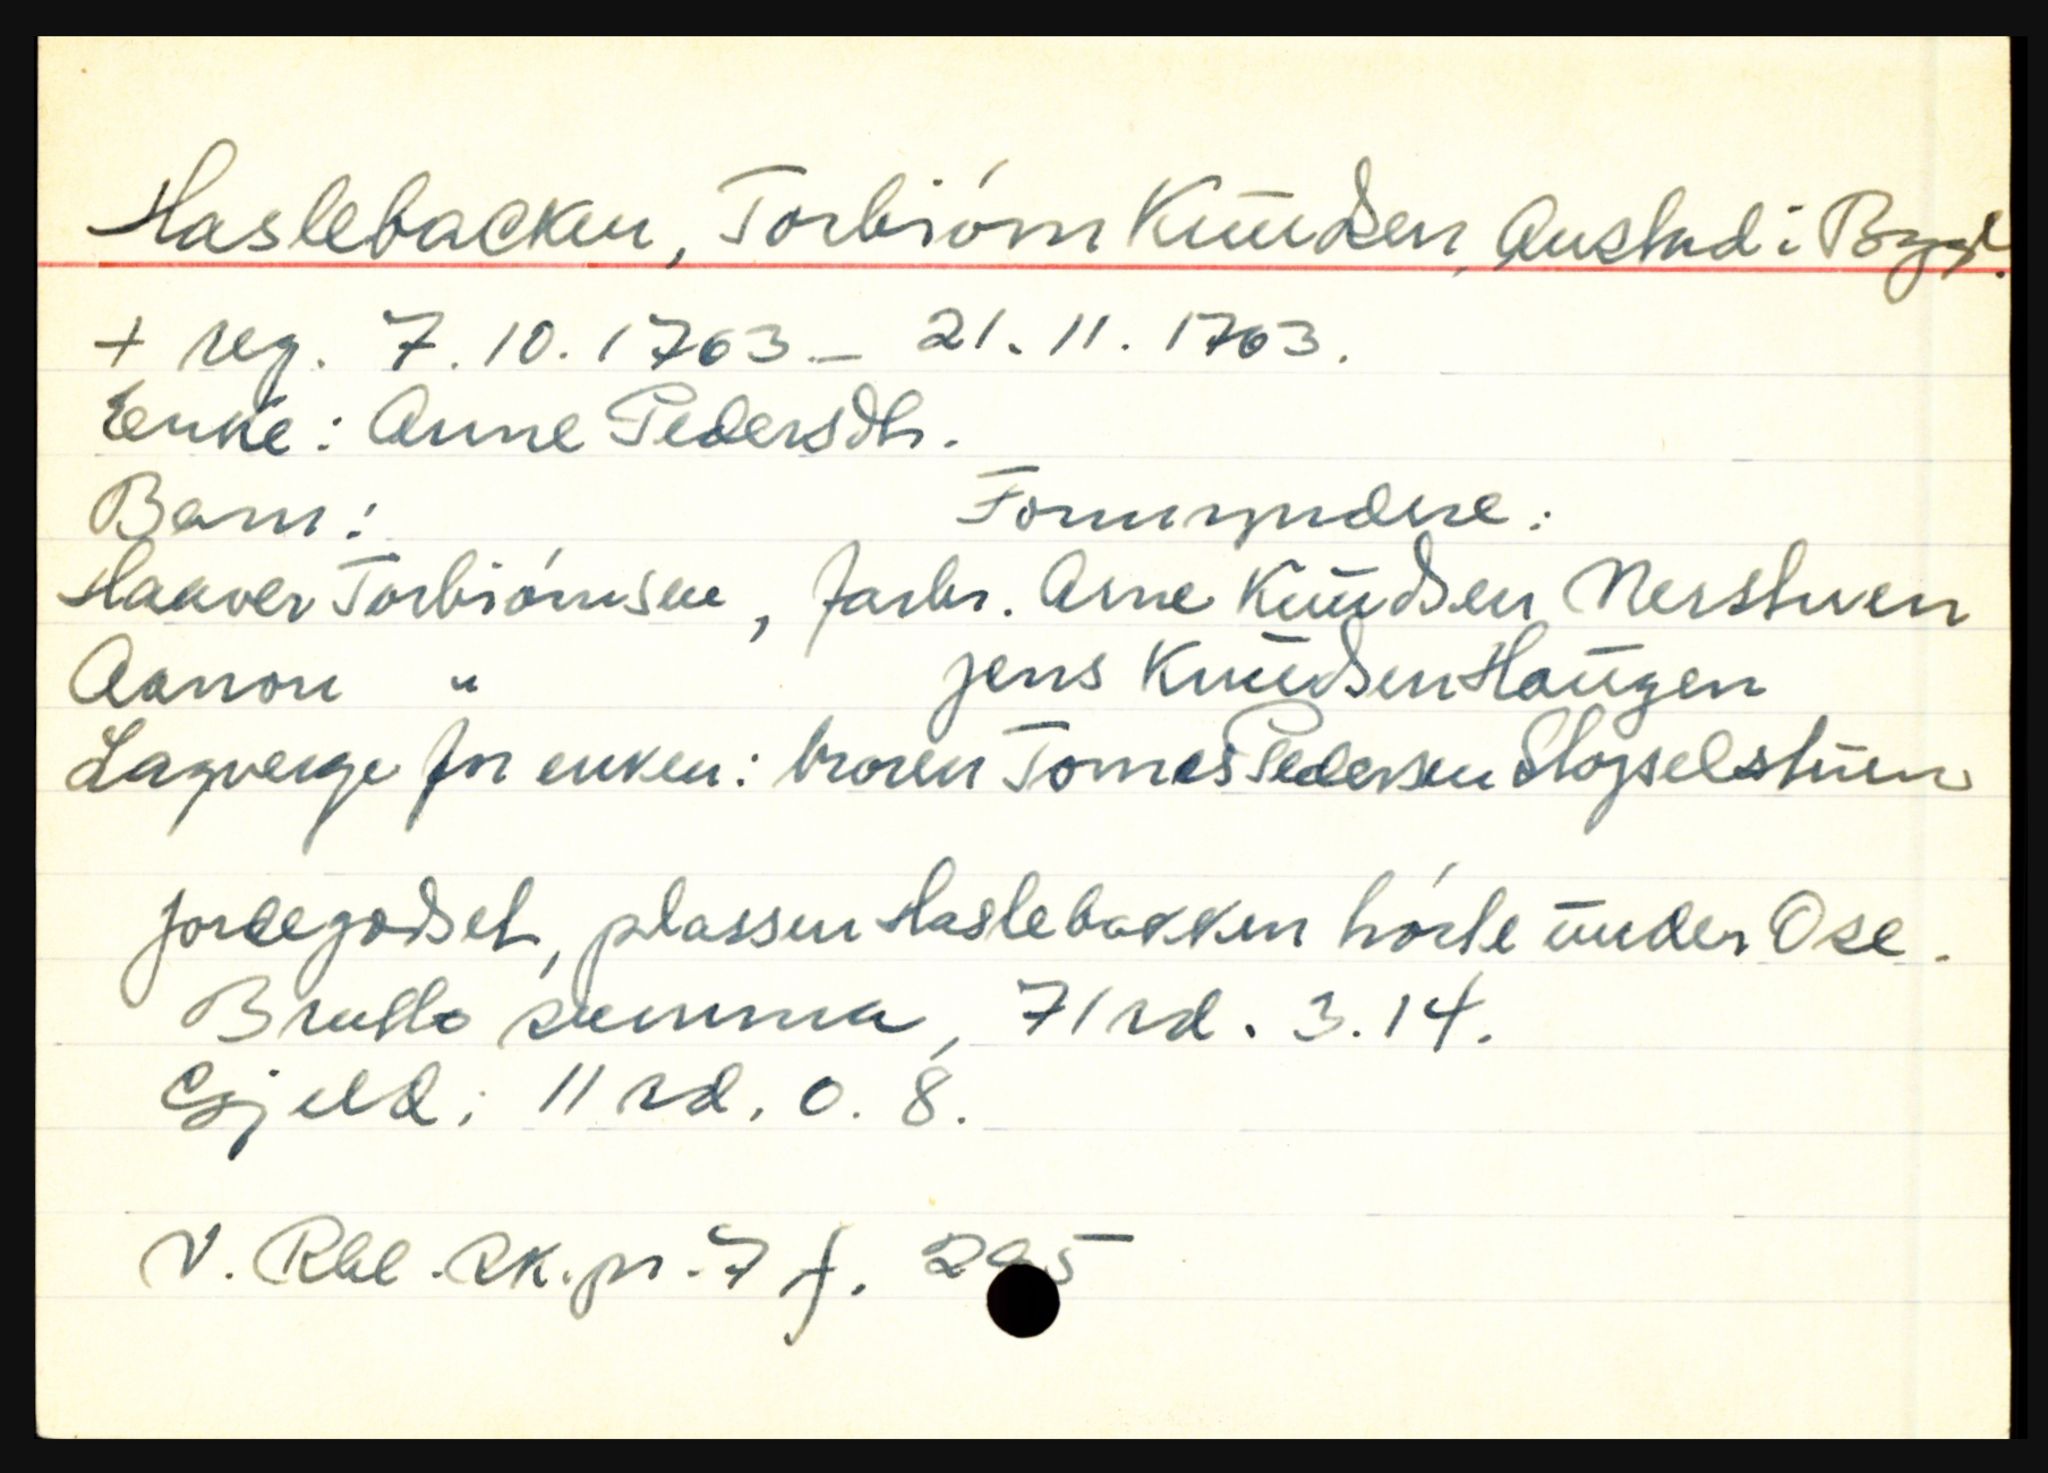 Haslebacken, Torbiórn Knudsen, Austad i Bygl.
+ reg. 7.10.1763 – 21.11.1763.
Enke: Anne Pedersdtr.
Barn: Formyndere:
Haaver Torbiórnsen, farbr. Arne Knudsen Nerstuen
Aanon " Jens Knudsen Haugen
Lagverge for enken: broren Tomes Pedersen
Jordegodset, plassen Haslebakken hórte under Ose.
Brutto summa, 71 rd. 3.14.
Gjeld; 11 rd. 0.8.
V. Rbl. sk.pr. 7 f. 295